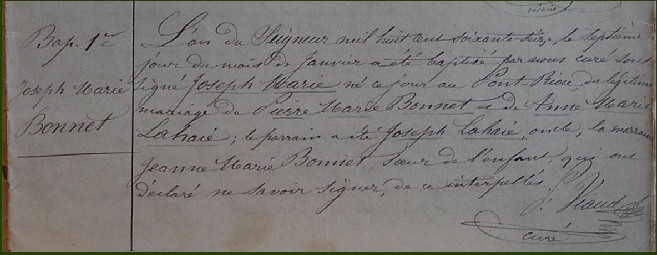 Bap. 1er
Joseph Marie
Bonnet
L'an du Seigneur mil huit cent soixante seize, le septième
jour du mois de Janvier a été baptisé par nous curé sous
signé Joseph Marie né ce jour au Pont Riou, du légitime
mariage de Pierre Marie Bonnet et de Anne Marie
Lahaie; le parrain a été Joseph Lahaie, oncle, la marraine
Jeanne Marie Bonnet sœur de l'enfant, qui ont
déclaré ne savoir signer, de ce interpellés.
J. Viaud
curé